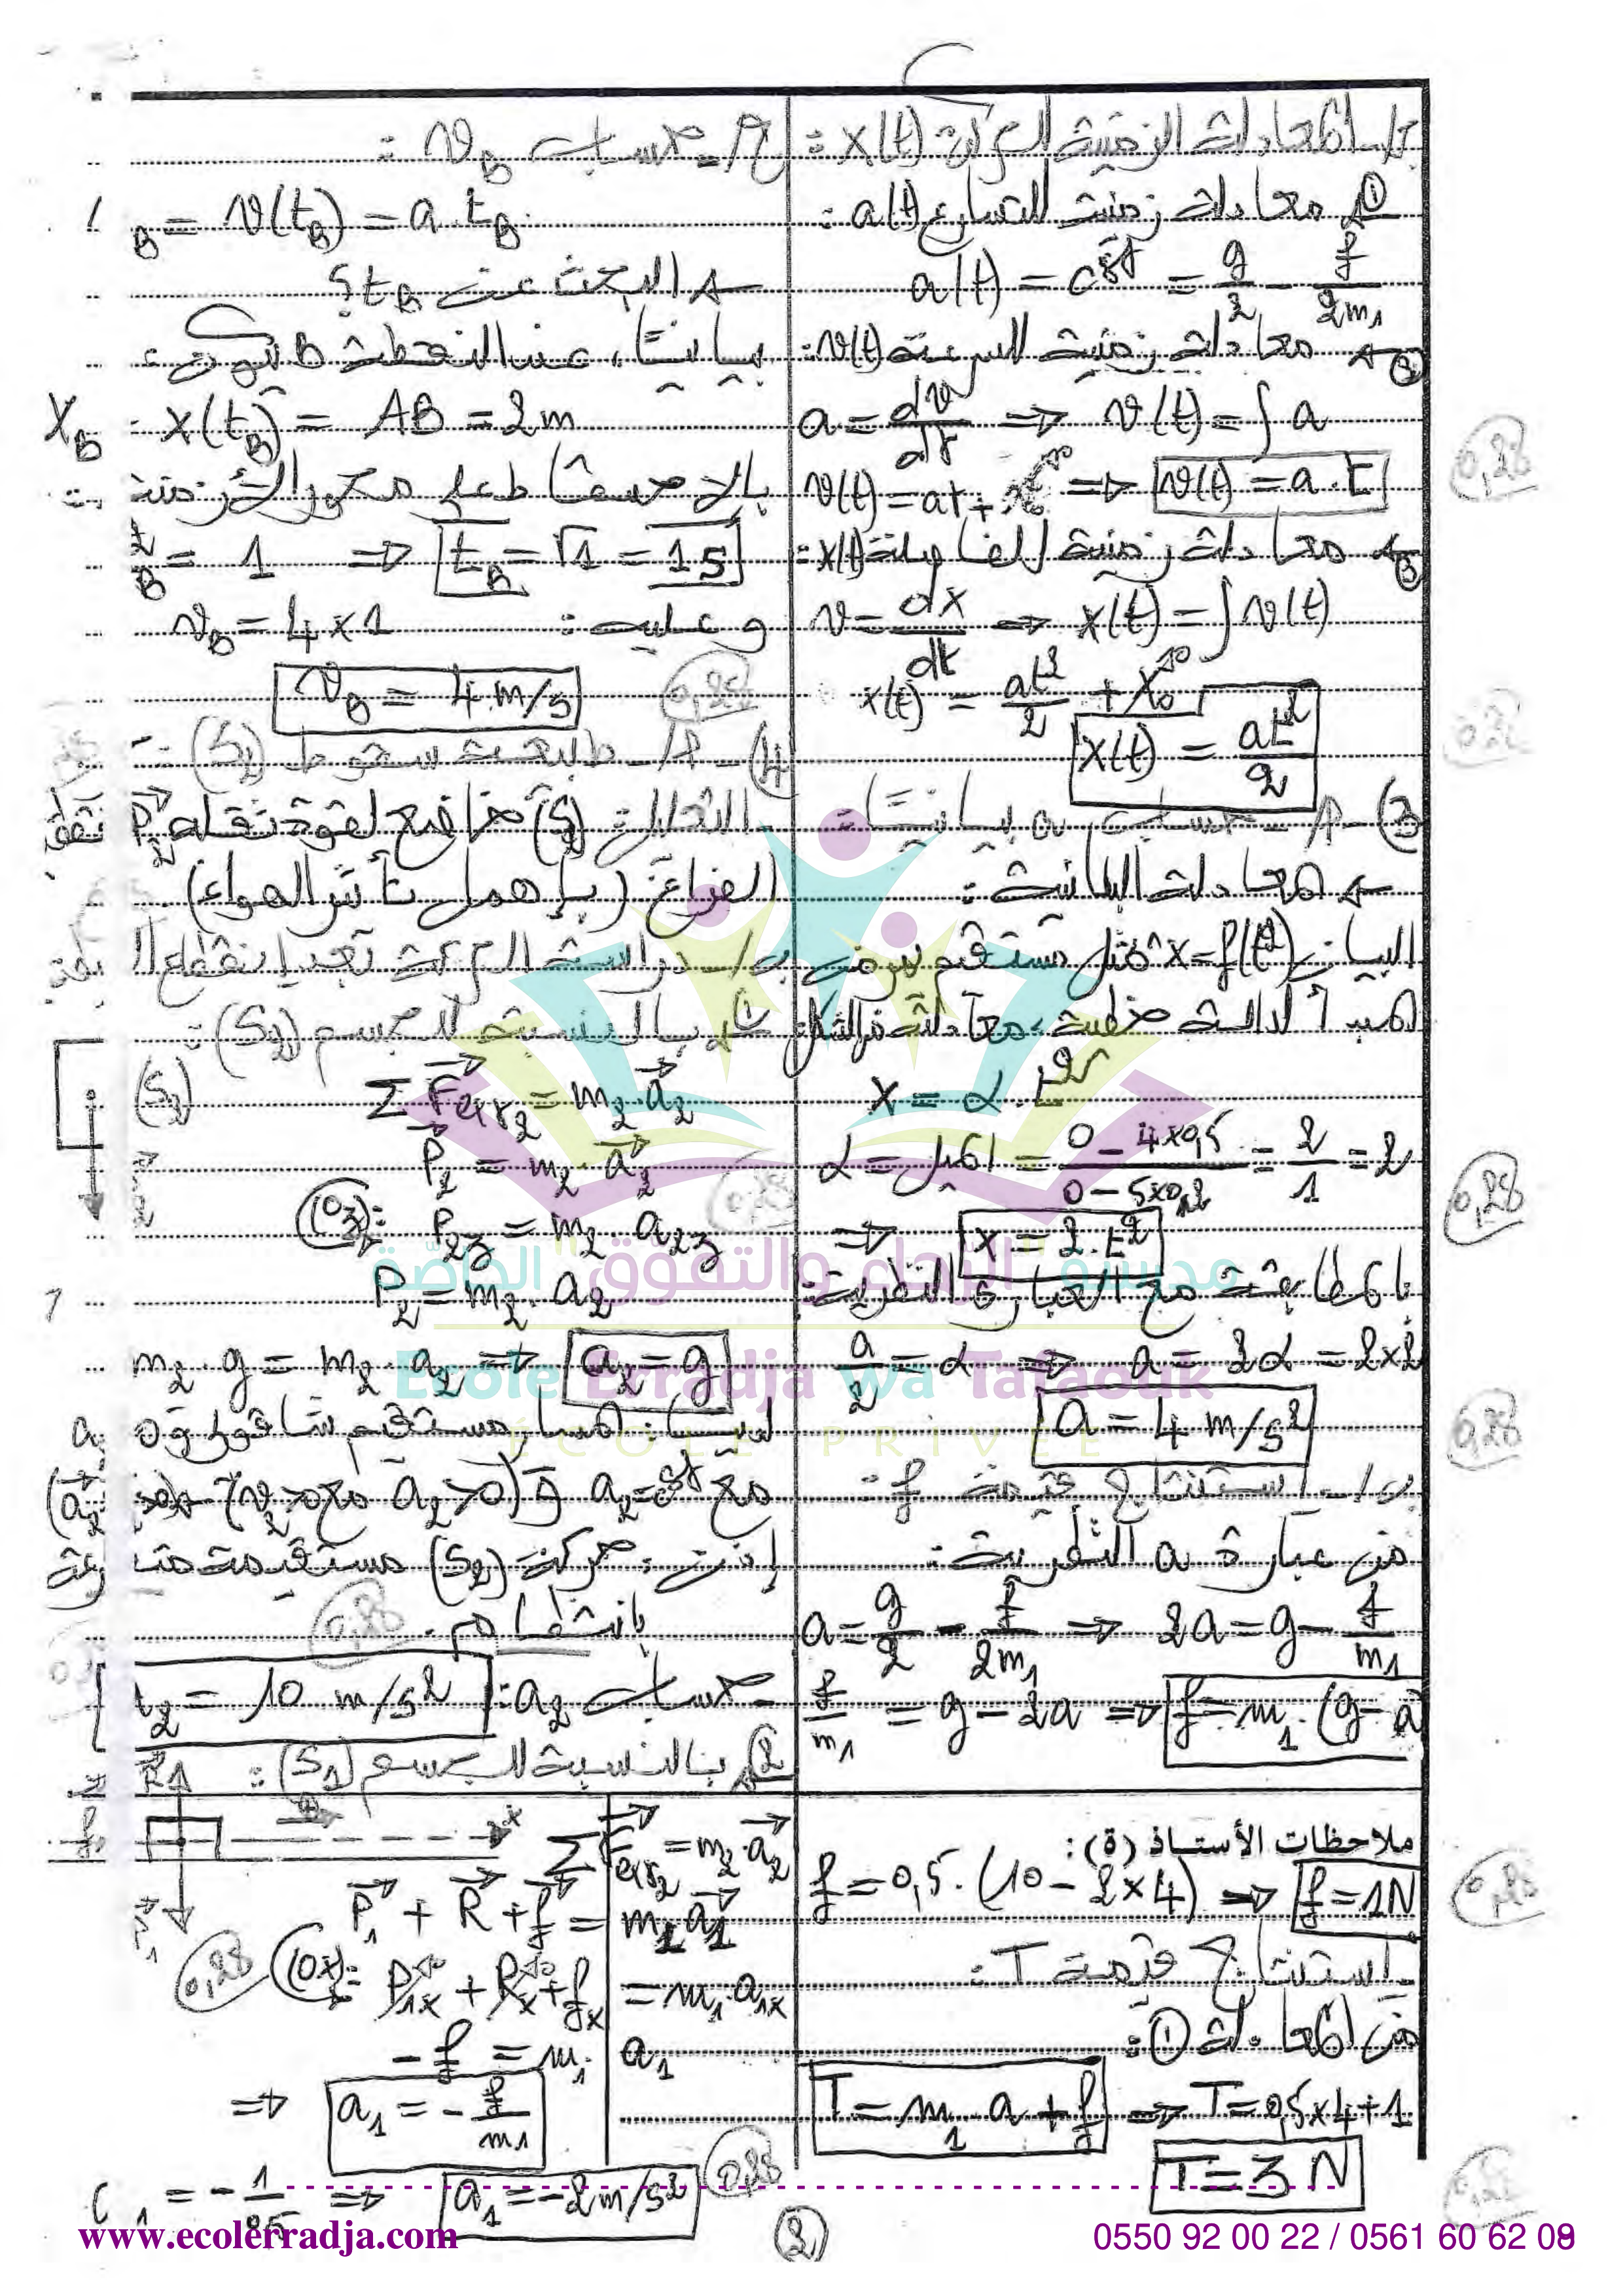 ب/ـ المعادلات الزمنية للحركة x(t):
① معادلة زمنية للتسارع a(t):
a(t) = cst = g/2 - f/2m1
② معادلة زمنية للسرعة v(t):
a = dv/dt ⇒ v(t) = ∫ a
v(t) = at + v0 ⇒ v(t) = a.t
③ معادلة زمنية للفاصلة x(t):
v = dx/dt ⇒ x(t) = ∫ v(t)
x(t) = at²/2 + x0
x(t) = at²/2
3)-أ/- حساب a بيانيا:
معادلة البيان:
البيان x=f(t²) يمثل مستقيم يمر من
المبدأ دالته خطية معادلته من الشكل:
x = α.t²
α = الميل = (0 - 4×0,5)/(0 - 5×0,2) = 2/1 = 2
⇒ x = 2.t²
بالمطابقة مع العبارة النظرية:
a/2 = α ⇒ a = 2α = 2×2
a = 4 m/s²
ب/ـ استنتاج قيمة f:
من عبارة a النظرية:
a = g/2 - f/2m1 ⇒ 2a = g - f/m1
f/m1 = g - 2a ⇒ f = m1.(g - a
ملاحظات الأستاذ (ة):
f = 0,5.(10 - 2×4) ⇒ f = 1N
ـ استنتاج قيمة T:
من المعادلة ①:
T = m1 a + f ⇒ T = 0,5×4+1
T = 3 N
ج/ـ حساب vB:
B = v(tB) = a.tB
البحث عن tB؟
بيانيا، عند النقطة B تكون:
XB = x(tB) = AB = 2m
بالإسقاط على محور الأزمنة
t²B = 1 ⇒ tB = √1 = 1s
وعليه: vB = 4×1
vB = 4 m/s
4)ـ أ/ـ طبيعة سقوط (S2):
التعليل: (S2) خاضع لقوة ثقله P2 فقط
الفراغ (بإهمال تأثير الهواء).
ب/ـ دراسة الحركة بعد انقطاع ال
① بالنسبة للجسم (S2):
(S2)
Σ Fext2 = m2.a2
P2 = m2.a2
(Oz): P2z = m2.a2z
P2 = m2.a2
m2.g = m2.a2 ⇒ a2 = g
لدينا: المسار مستقيم شاقولي و
مع a2 = cst و (a2>0 مع v2>0)
إذن: حركة (S2) مستقيمة متسارعة
بانتظام.
ـ حساب a2: 2 = 10 m/s²
② بالنسبة للجسم (S1):
Σ Fext2 = m2.a2
P1 + R + f = m1.a1
(Ox): P1x + Rx + fx = m1.a1x
- f = m1 a1
⇒ a1 = - f/m1
1 = - 1/0,5 ⇒ a1 = -2m/s²
②
مدرسة "الرجاء والتفوق" الخاصة
Ecole Erradja wa Tafaouk
ÉCOLE PRIVÉE
www.ecolerradja.com
0550 92 00 22 / 0561 60 62 09